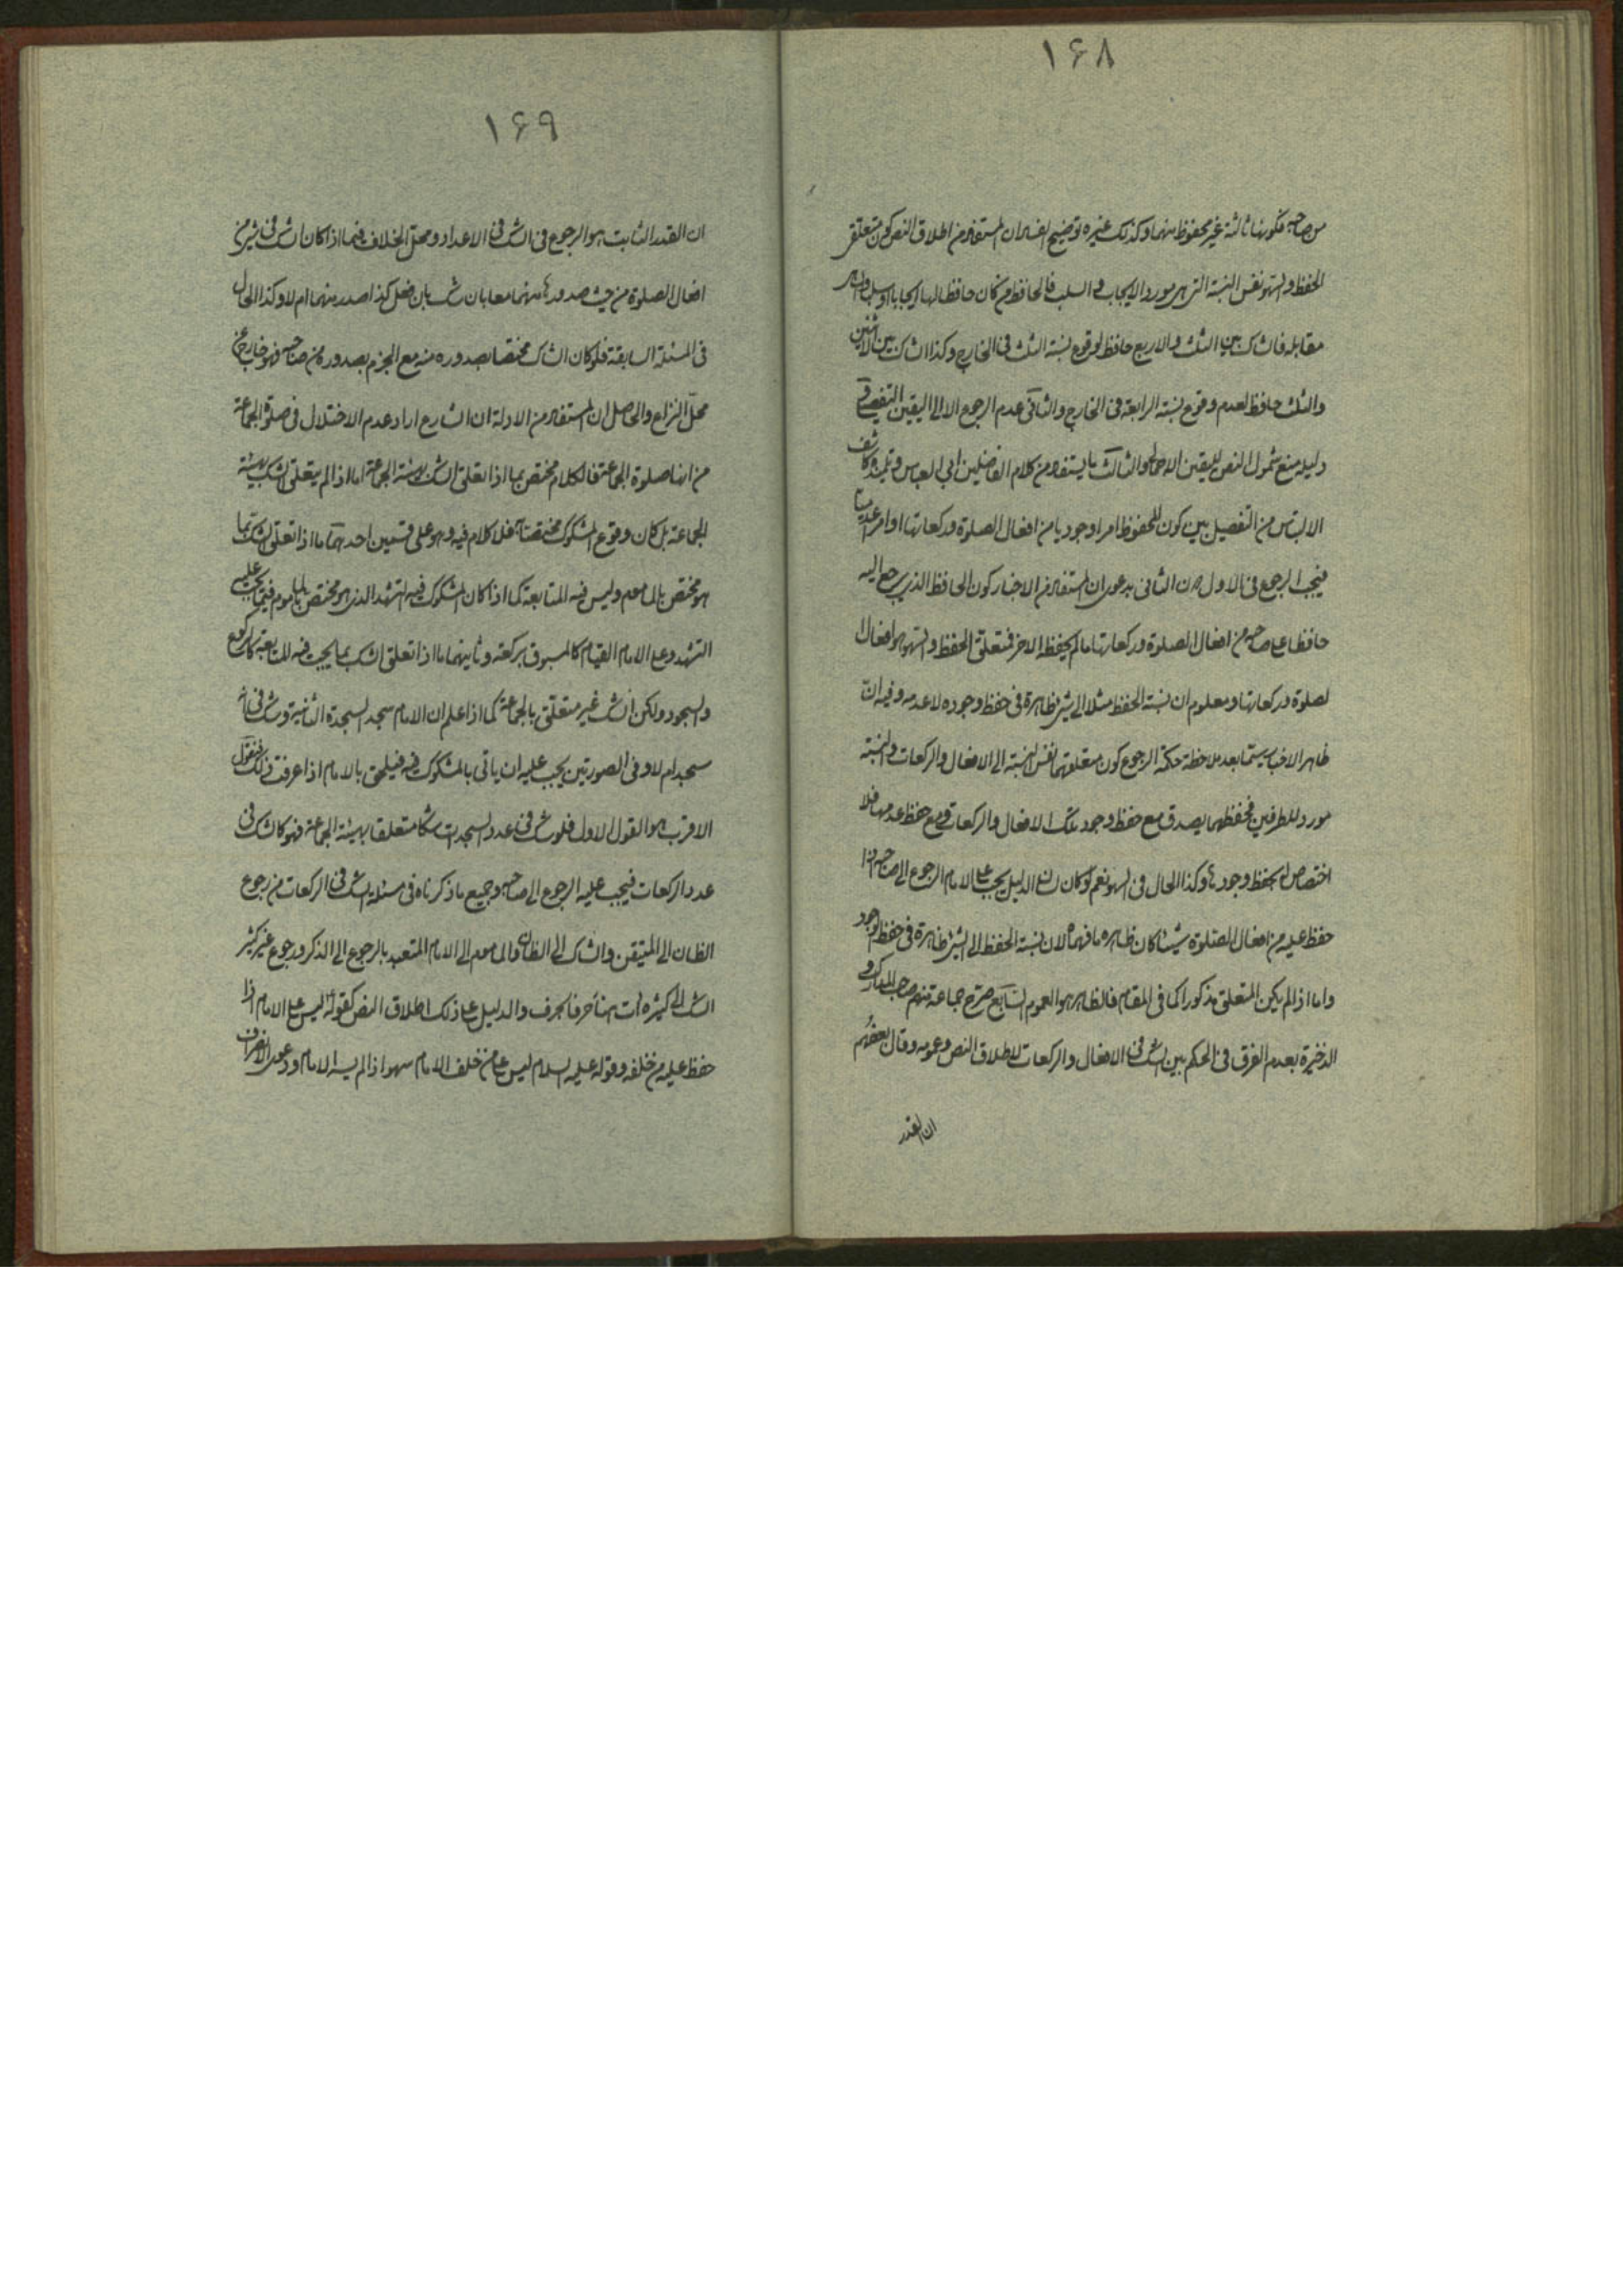 ١۶٨
من صاحبه فكونها ثالثة غير محفوظ منهما وكذلك غيره توضيح الفساد ان المستفاد من اطلاق النص كون متعلق
الحفظ والسهو نفس النسبة التى هى مورد الايجاب والسلب فالحافظ من كان حافظا لها ايجابا او سلبا
مقابله فالشاك بين الثلث والاربع حافظ لوقوع نسبة الثلث فى الخارج وكذا الشاك بين الاثنين
والثلث حافظ لعدم وقوع نسبة الرابعة فى الخارج والثانى عدم الرجوع الا الى اليقين التفصيلى و
دليله منع شمول النص لليقين الاجمالى والثالث ما يستفاد من كلام الفاضلين ابى العباس وتلميذه كاشف
الالتباس من التفصيل بين كون المحفوظ امرا وجوديا من افعال الصلوة وركعاتها او امرا عدميا
فيجب الرجوع فى الاول دون الثانى بدعوى ان المستفاد من الاخبار كون الحافظ الذى يرجع اليه
حافظا على صاحبه من افعال الصلوة وركعاتها ما لم يحفظه الاخر فمتعلق الحفظ والسهو هو افعال
لصلوة وركعاتها ومعلوم ان نسبة الحفظ مثلا الى شئ ظاهرة فى حفظ وجوده لا عدمه وفيه ان
ظاهر الاخبار سيما بعد ملاحظة حكمة الرجوع كون متعلقهما نفس النسبة الى الافعال والركعات والنسبة
مورد للطرفين فحفظهما يصدق مع حفظ وجود تلك الافعال والركعات ومع حفظ عدمها فلا
اختصاص له بحفظ وجودها وكذا الحال فى السهو نعم لو كان لسان الدليل يجب على الامام الرجوع الى صاحبه اذا
حفظ عليه من افعال الصلوة شيئا كان ظاهره ما فهماه لان نسبة الحفظ الى الشئ ظاهرة فى حفظ الوجود
واما اذا لم يكن المتعلق مذكورا كما فى المقام فالظاهر هو العموم السابع صرح جماعة منهم صاحب المدارك و
الذخيرة بعدم الفرق فى الحكم بين الشك فى الافعال والركعات لاطلاق النص وعمومه وقال بعضهم
ان القدر
١۶٩
ان القدر الثابت هو الرجوع فى الشك فى الاعداد ومحل الخلاف فيما اذا كان الشك فى شئ من
افعال الصلوة من حيث صدورها منهما معا بان شك بان فعل كذا صدر منهما ام لا وكذا الحال
فى المسئلة السابقة فلو كان الشاك مختصا بصدوره منه مع الجزم بصدوره من صاحبه فهو خارج عن
محل النزاع والحاصل ان المستفاد من الادلة ان الشارع اراد عدم الاختلال فى صلوة الجماعة
من انها صلوة الجماعة فالكلام مختص بما اذا تعلق الشك بهيئة الجماعة اما اذا لم يتعلق الشك بهيئة
الجماعة بل كان وقوع المشكوك مختصا فلا كلام فيه وهو على قسمين احدهما ما اذا تعلق الشك بما
هو مختص بالماموم وليس فيه المتابعة كما اذا كان المشكوك فيه التشهد الذى هو مختص بالماموم فيما يجب عليه
التشهد وعلى الامام القيام كالمسبوق بركعة وثانيهما ما اذا تعلق الشك بما يجب فيه المتابعة كالركوع
والسجود ولكن الشك غير متعلق بالجماعة كما اذا علم ان الامام سجد السجدة الثانية وشك فى انه
سجد ام لا وفى الصورتين يجب عليه ان ياتى بالمشكوك فيه فيلحق بالامام اذا عرفت ذلك فنقول
الاقرب هو القول الاول فلو شك فى عدد السجدات شكا متعلقا بهيئة الجماعة فهو كالشك فى
عدد الركعات فيجب عليه الرجوع الى صاحبه وجميع ما ذكرناه فى مسئلة الشك فى الركعات من رجوع
الظان الى المتيقن والشاك الى الظان والماموم الى الامام المتعبد بالرجوع الى الذكر ورجوع غير كثير
الشك الى كثيره ات هنا حرفا بحرف والدليل على ذلك اطلاق النص كقوله ليس على الامام اذا
حفظ عليه من خلفه وقوله عليه السلام ليس على من خلف الامام سهو اذا لم يسه الامام ودعوى الانصراف